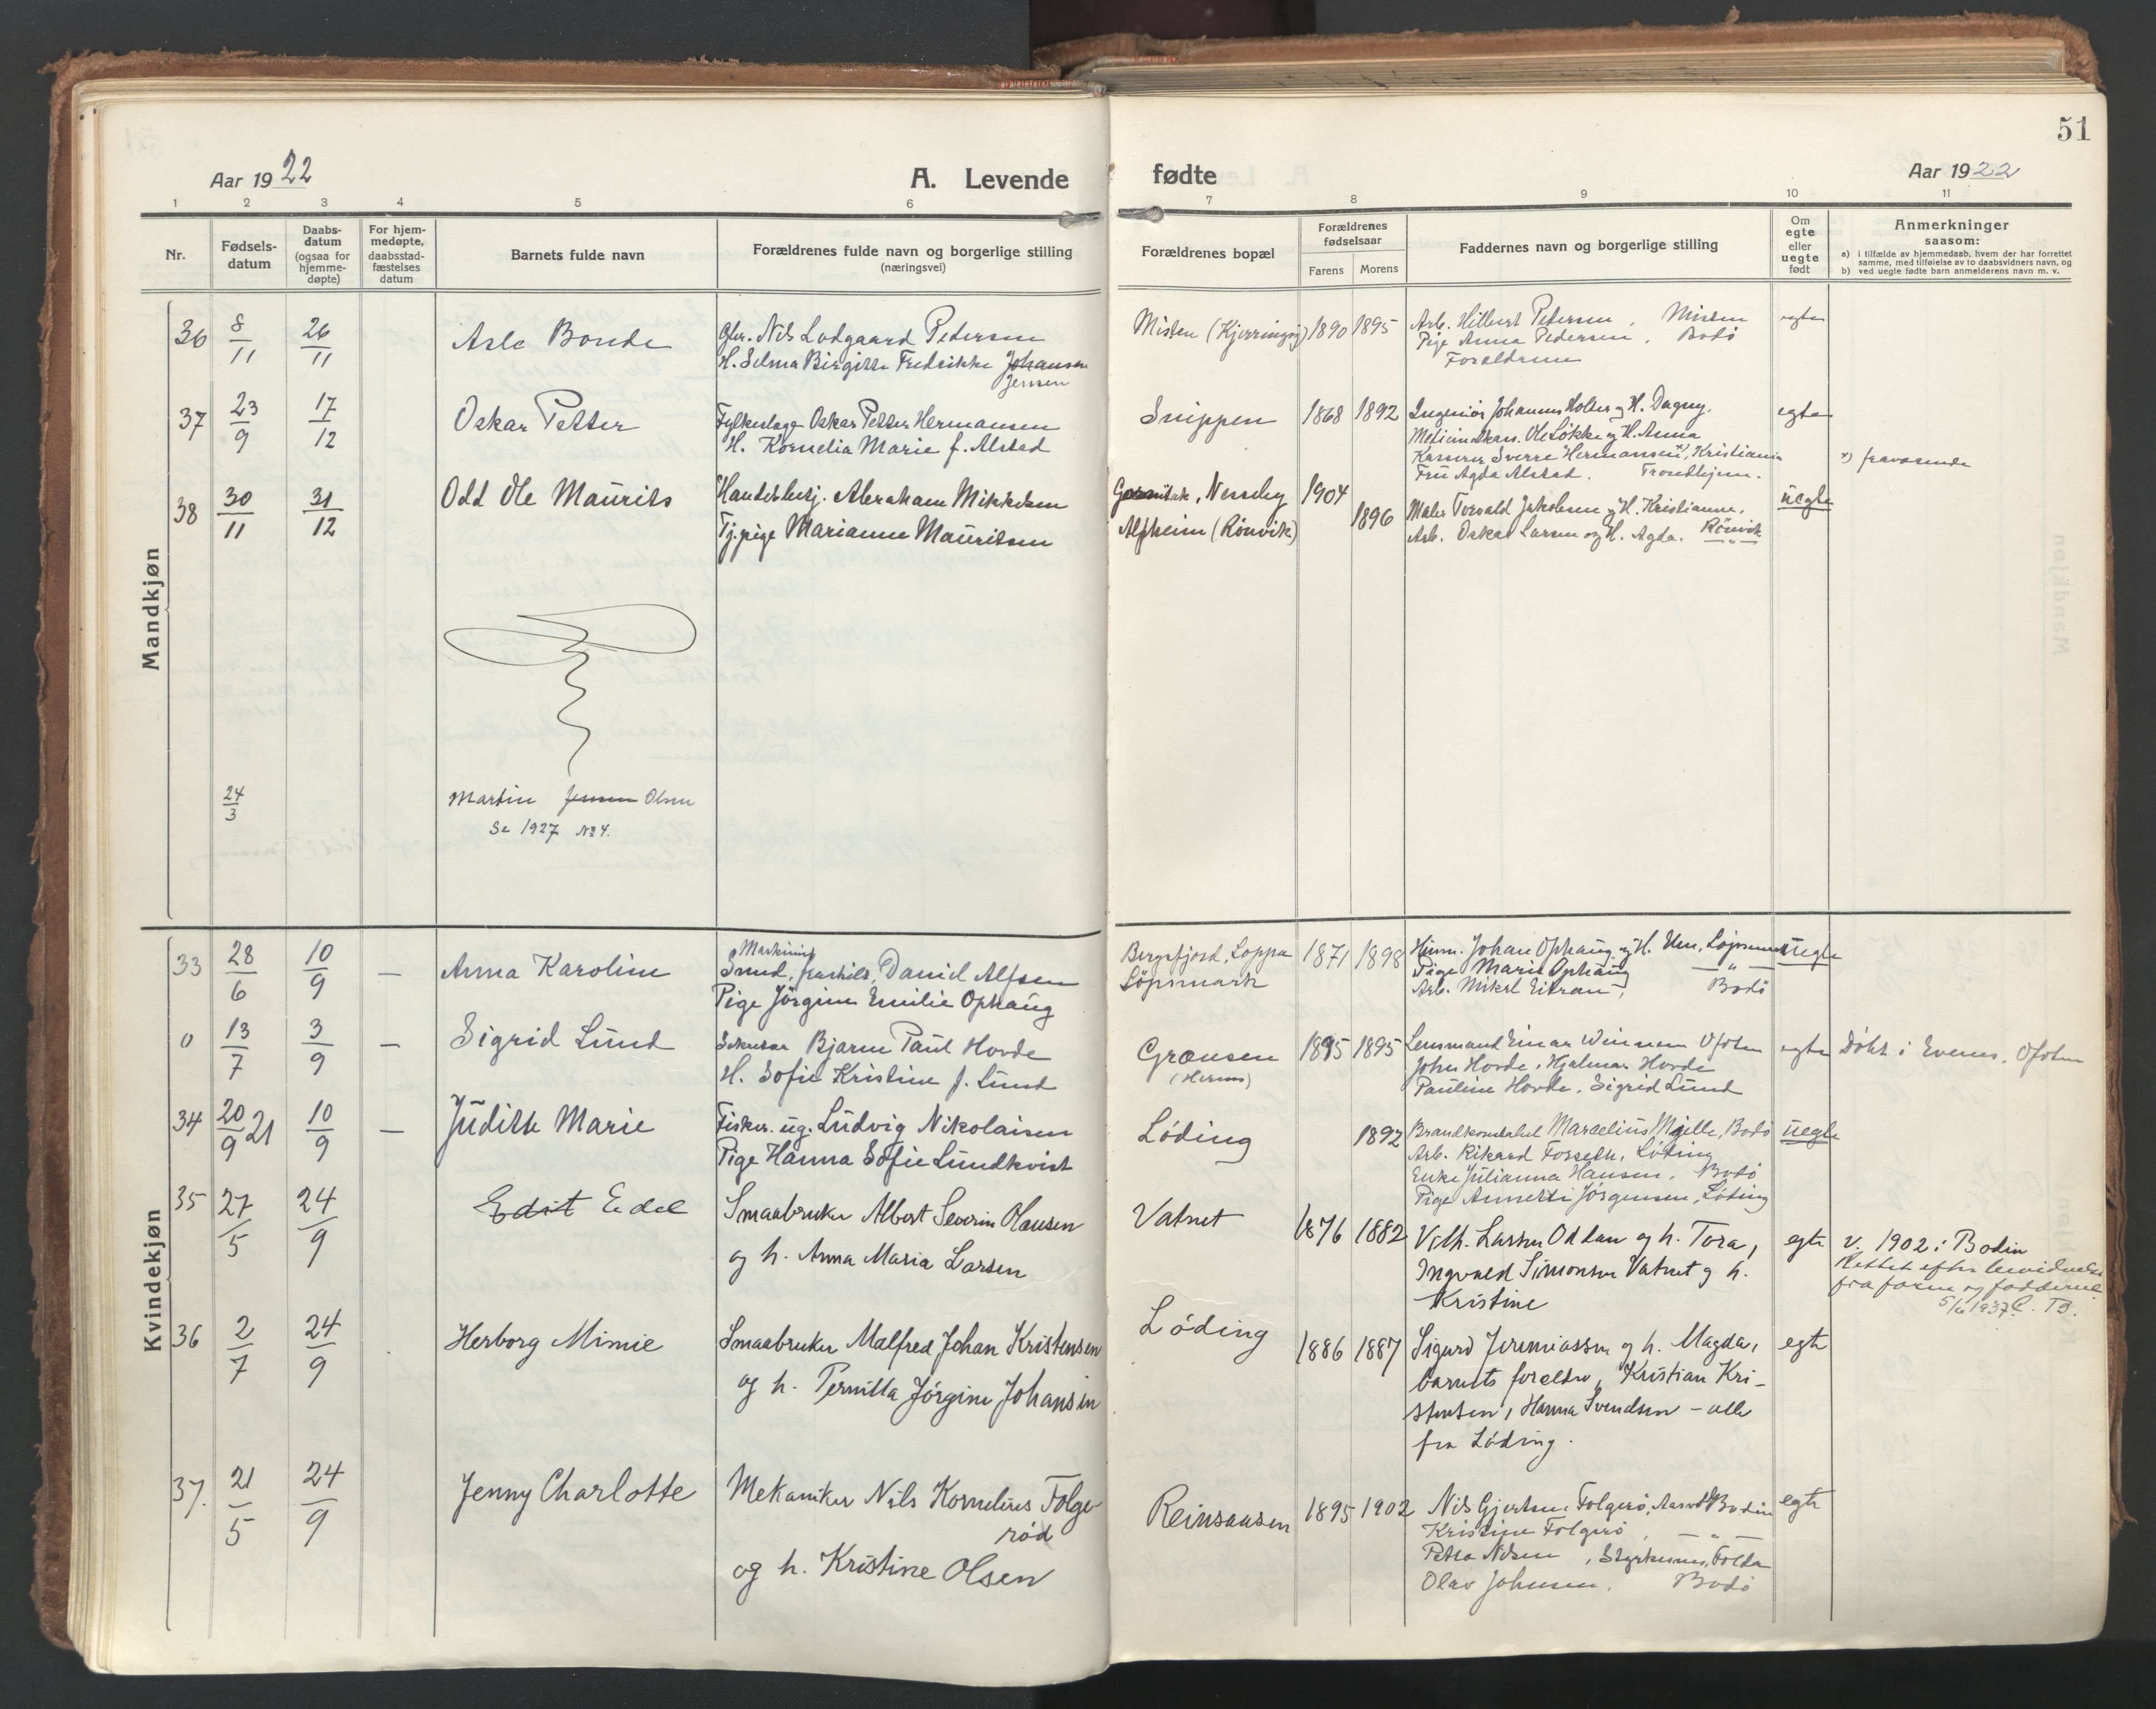 51
Aar 1922
A. Levende fødte
Aar 1922
1 2 3 4 5 6 7 8 9 10 11
Nr.
Fødsels-
datum
Daabs-
datum
(ogsaa for
hjemme-
døpte)
For hjem-
medøpte,
daabsstad-
fæstelses
datum
Barnets fulde navn
Forældrenes fulde navn og borgerlige stilling
(næringsvei)
Forældrenes bopæl
Forældrenes
fødselsaar
Farens Morens
Faddernes navn og borgerlige stilling
Om
egte
eller
uegte
født
Anmerkninger
saasom:
a) i tilfælde av hjemmedaab, hvem der har forrettet
samme, med tilføielse av to daabsvidners navn, og
b) ved uegte fødte barn anmelderens navn m. v.
Mandkjøn
36 8/11 26/11 Asle Bonde
Gbr. Nils Lodgaard Petersen
H. Selma Birgitte Fredrikke Johansen
Jensen
Misten (Kjerringøy) 1890 1895
Arb. Hilbert Petersen, Misten
Pige Anna Pedersen, Bodö
Forældrene
egte
37 23/9 17/12 Oskar Petter
Fylkeslæge Oskar Petter Hermansen
H. Kornelia Marie f. Alstad
Snippen 1868 1892
Ingeniör Johannes Holter og H. Dagny,
Ole Løkke og H. Anna
Kasserer Sverre Hermansen x), Kristiania
Fru Agda Alstad. Trondhjem.
egte
x) fraværende
38 30/11 31/12 Odd Ole Maurits
Handelsbetj. Abraham Mikkelsen
Tj.pige Marianne Mauritsen
Nesseby 1904
Alpheim (Rönvik) 1896
Maler Torvald Jakobsen og H. Kristianna,
Arb. Oskar Larsen og H. Agda. Rönvik
uegte
24/3 Martin Jensen Olsen
Se 1927 No 4.
Kvindekjøn
33 28/6 10/9 — Anna Karoline
Maskinist
Smed, fraskilt, Daniel Alfsen
Pige Jörgine Emilie Ophaug
Bergsfjord, Loppa 1871 1898
Löpsmark
Johan Ophaug og H. Løpsmark
Pige Marie Ophaug — " —
Arb. Mikal Eitran, Bodö
uegte
0 13/7 3/9 — Sigrid Lund
Bjarne Paul Hovde
H. Sofie Kristine f. Lund
Grænsen 1895 1895
Lensmand Einar Ofoten
John Hovde, Hjalmar Hovde
Pauline Hovde, Sigrid Lund
egte
Döbt i Evenes, Ofoten
34 20/9 21 10/9 — Judith Marie
Fisker. ug. Ludvig Nikolaisen
Pige Hanna Sofie Lundkvist
Löding 1892
Brandkonstabel Marcelius Bodö
Arb. Rikard Forseth, Löding
Enke Julianna Hansen, Bodö
Pige Annette Jörgensen, Löding
uegte
35 27/5 24/9 Edit Edel
Smaabruker Albert Severin Olausen
og h. Anna Maria Larsen
Vatnet 1876 1882
Vilh. Larsen Oddan og h. Tora,
Ingvald Simonsen Vatnet og h.
Kristine
egte
v. 1902 i Bodin
Rettet efter bevidnelse
fra faren og fadderne
5/6 1937
36 2/7 24/9 Herborg Mimie
Smaabruker Malfred Johan Kristensen
og h. Pernilla Jørgine Johansen
Löding 1886 1887
Sigurd Jeremiassen og h. Magda,
barnets foreldre, Kristian Kri-
stensen, Hanna Svendsen – alle
fra Löding.
egte
37. 21/5 24/9 Jenny Charlotte
Mekaniker Nils Kornelius Folge-
röd
og h. Kristine Olsen
Reinsaasen 1895 1902
Nils Gjertsen Folgerö, Bodin
Kristine Folgerö, — " —
Petra Nilsen, Styrkesnes, Folda
Olav Johnsen, Bodö
egte